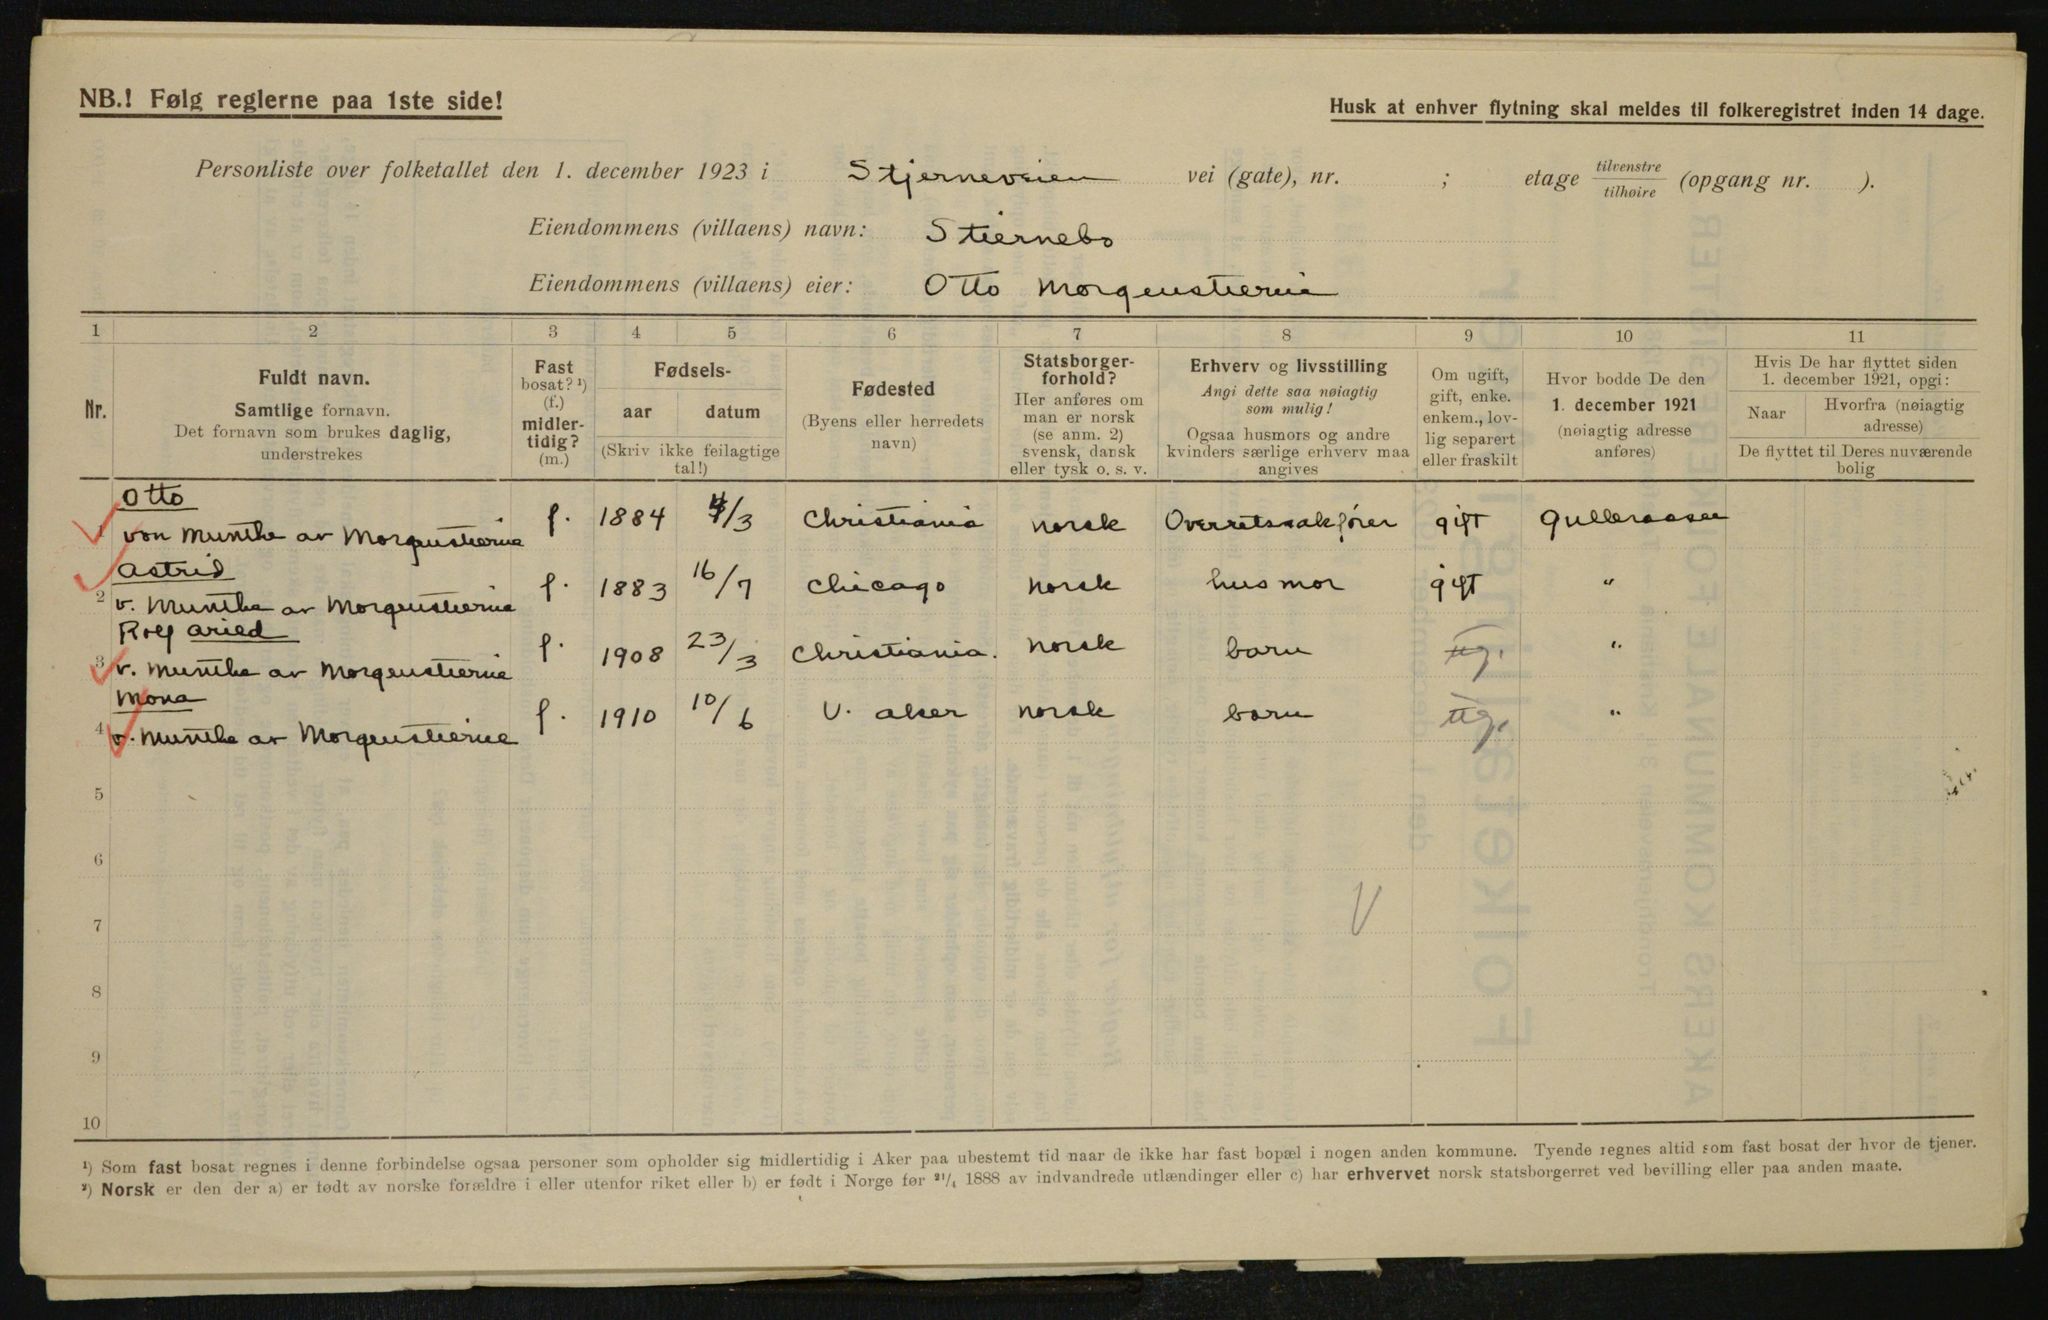 NB.! Følg reglerne paa 1ste side!
Husk at enhver flytning skal meldes til folkeregistret inden 14 dage.
Personliste over folketallet den 1. december 1923 i Stjerneveien vei (gate), nr. ; etage tilvenstre tilhøire (opgang nr. ).
Eiendommens (villaens) navn: Stiernebo
Eiendommens (villaens) eier: Otto Morgenstierne
1 2 3 4 5 6 7 8 9 10 11
Nr.
Fuldt navn.
Samtlige fornavn.
Det fornavn som brukes daglig,
understrekes
Fast
bosat? ¹)
(f.)
midler-
tidig?
(m.)
Fødsels-
aar datum
(Skriv ikke feilagtige
tal!)
Fødested
(Byens eller herredets
navn)
Statsborger-
forhold?
Her anføres om
man er norsk
(se anm. 2)
svensk, dansk
eller tysk o. s. v.
Erhverv og livsstilling
Angi dette saa nøiagtig
som mulig!
Ogsaa husmors og andre
kvinders særlige erhverv maa
angives
Om ugift,
gift, enke.
enkem., lov-
lig separert
eller fraskilt
Hvor bodde De den
1. december 1921
(nøiagtig adresse
anføres)
Hvis De har flyttet siden
1. december 1921, opgi:
Naar
Hvorfra (nøiagtig
adresse)
De flyttet til Deres nuværende
bolig
Otto
1 von Munthe av Morgenstierne f. 1884 4/3 Christiania norsk Overretssakfører gift Gulleraasen
Astrid
2 v. Munthe av Morgenstierne f. 1883 16/7 Chicago norsk husmor gift "
Rolf Aried
3 v. Munthe av Morgenstierne f. 1908 23/3 Christiania. norsk barn ug. "
Mona
4 v. Munthe av Morgenstierne f. 1910 10/6 V. Aker norsk barn ug. "
5
6
7
8
9
10
¹) Som fast bosat regnes i denne forbindelse ogsaa personer som opholder sig midlertidig i Aker paa ubestemt tid naar de ikke har fast bopæl i nogen anden kommune. Tyende regnes altid som fast bosat der hvor de tjener.
²) Norsk er den der a) er født av norske forældre i eller utenfor riket eller b) er født i Norge før ²¹/₄ 1888 av indvandrede utlændinger eller c) har erhvervet norsk statsborgerret ved bevilling eller paa anden maate.